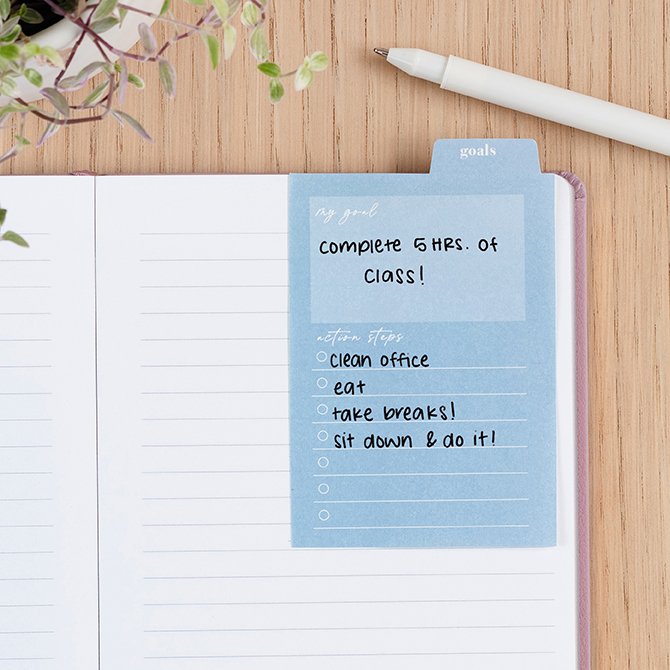 goals
my goal
complete 5 HRS. of
class!
action steps
clean office
eat
take breaks!
sit down & do it!